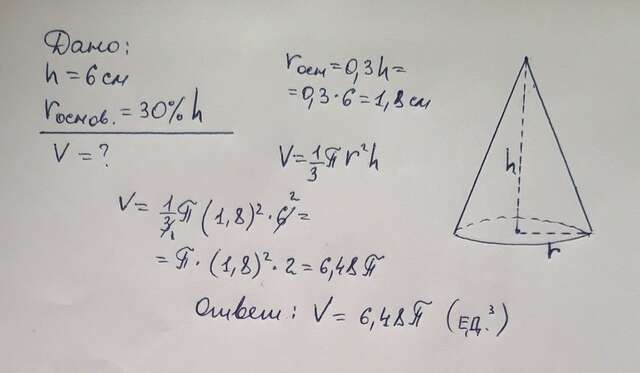 Дано:
h = 6 см
rоснов. = 30% h
V = ?
rосн = 0,3h =
= 0,3 · 6 = 1,8 см
V = 1/3 π r² h
V = 1/3 π (1,8)² · 6 =
1 2
= π · (1,8)² · 2 = 6,48π
Ответ: V = 6,48π (ед.³)
h
r